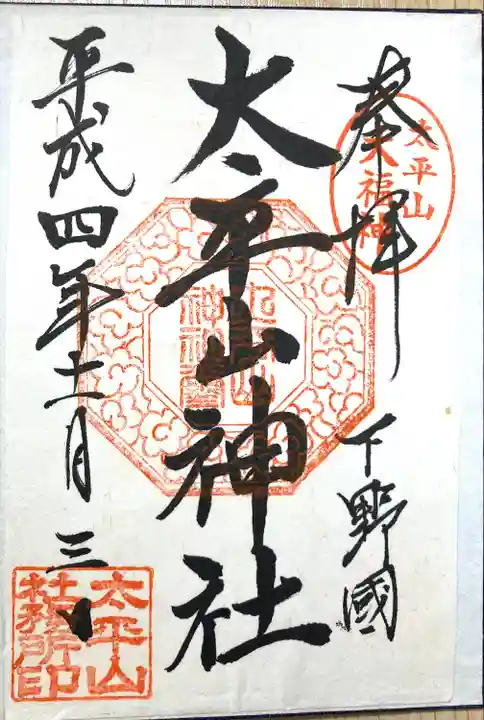 奉拝
下野國
太平山神社
平成四年十一月三日
太平山
大福神
太平山
社務所印